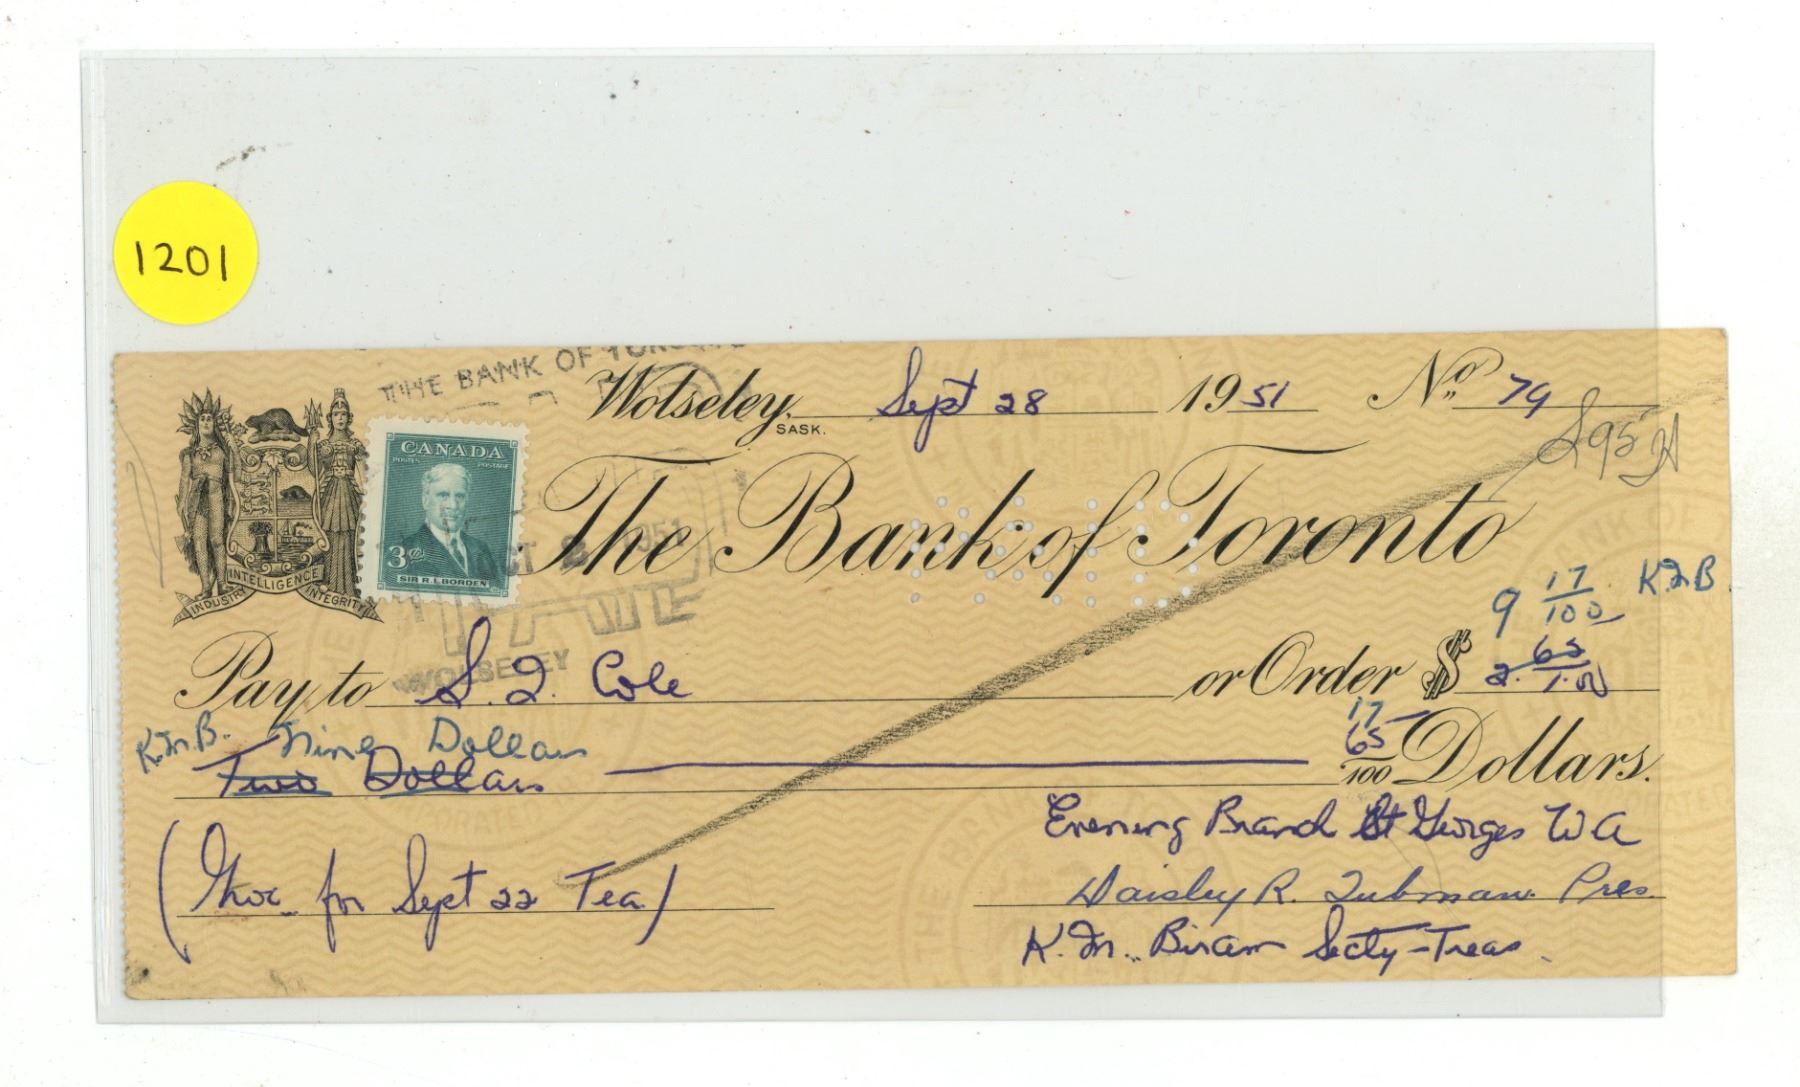 1201
THE BANK OF TORONTO
Wolseley, SASK. Sept 28 1951 No. 79
CANADA
POSTES POSTAGE
3¢
SIR R.L. BORDEN
OCT 8 1951
WOLSELEY
INTELLIGENCE
INDUSTRY INTEGRITY
The Bank of Toronto
9 17/100
Pay to S. J. Cole or Order $ 2. 65/100
K.M.B. Nine Dollars 17
Two Dollars 65/100 Dollars.
Evening Branch St Georges W A
for Sept 22 Tea)
Daisley R. Tubman Pres.
K. M. Biram Secty-Treas.